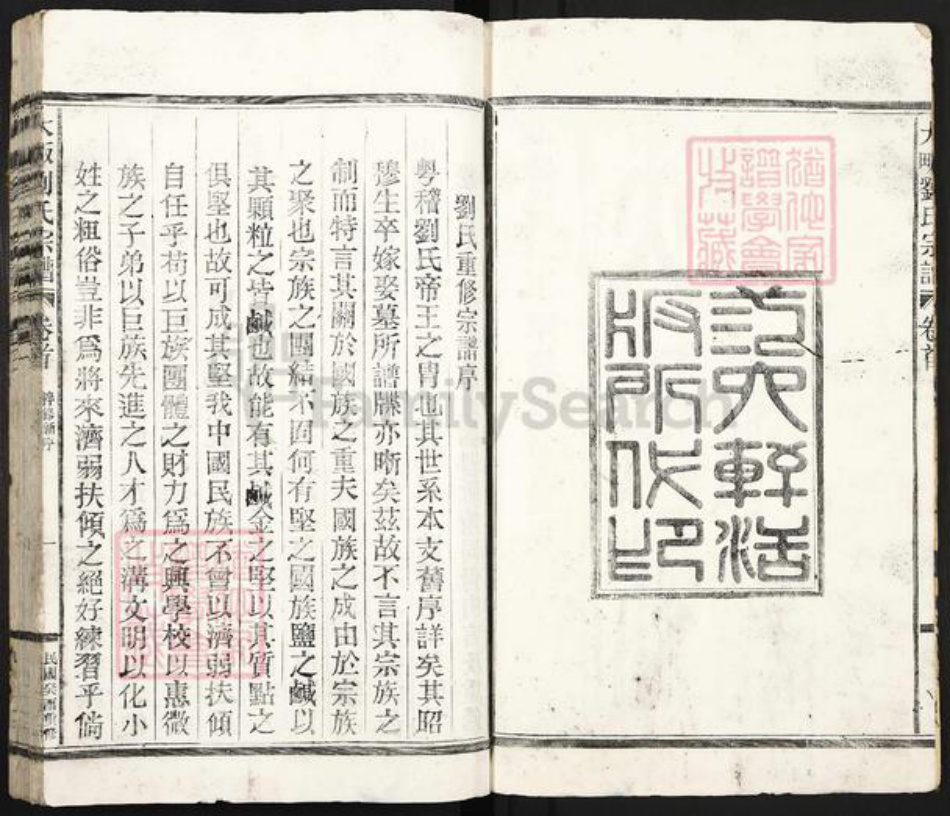 大畈劉氏宗譜
卷首
范大軒活
版所代印
劉氏重修宗譜序
粤稽劉氏帝王之胄也其世系本支舊序詳矣其昭
穆生卒嫁娶墓所譜牒亦晰矣茲故不言其宗族之
制而特言其關於國族之重夫國族之成由於宗族
之聚也宗族之團結不固何有堅之國族鹽之鹹以
其顆粒之皆鹹也故能有其鹹金之堅以其質點之
俱堅也故可成其堅我中國民族不會以濟弱扶傾
自任乎苟以巨族團體之財力爲之興學校以惠微
族之子弟以巨族先進之人才爲之溝文明以化小
姓之粗俗豈非爲將來濟弱扶傾之絕好練習乎倘
大畈劉氏宗譜
卷首
一
民國癸酉重修
FamilySearch